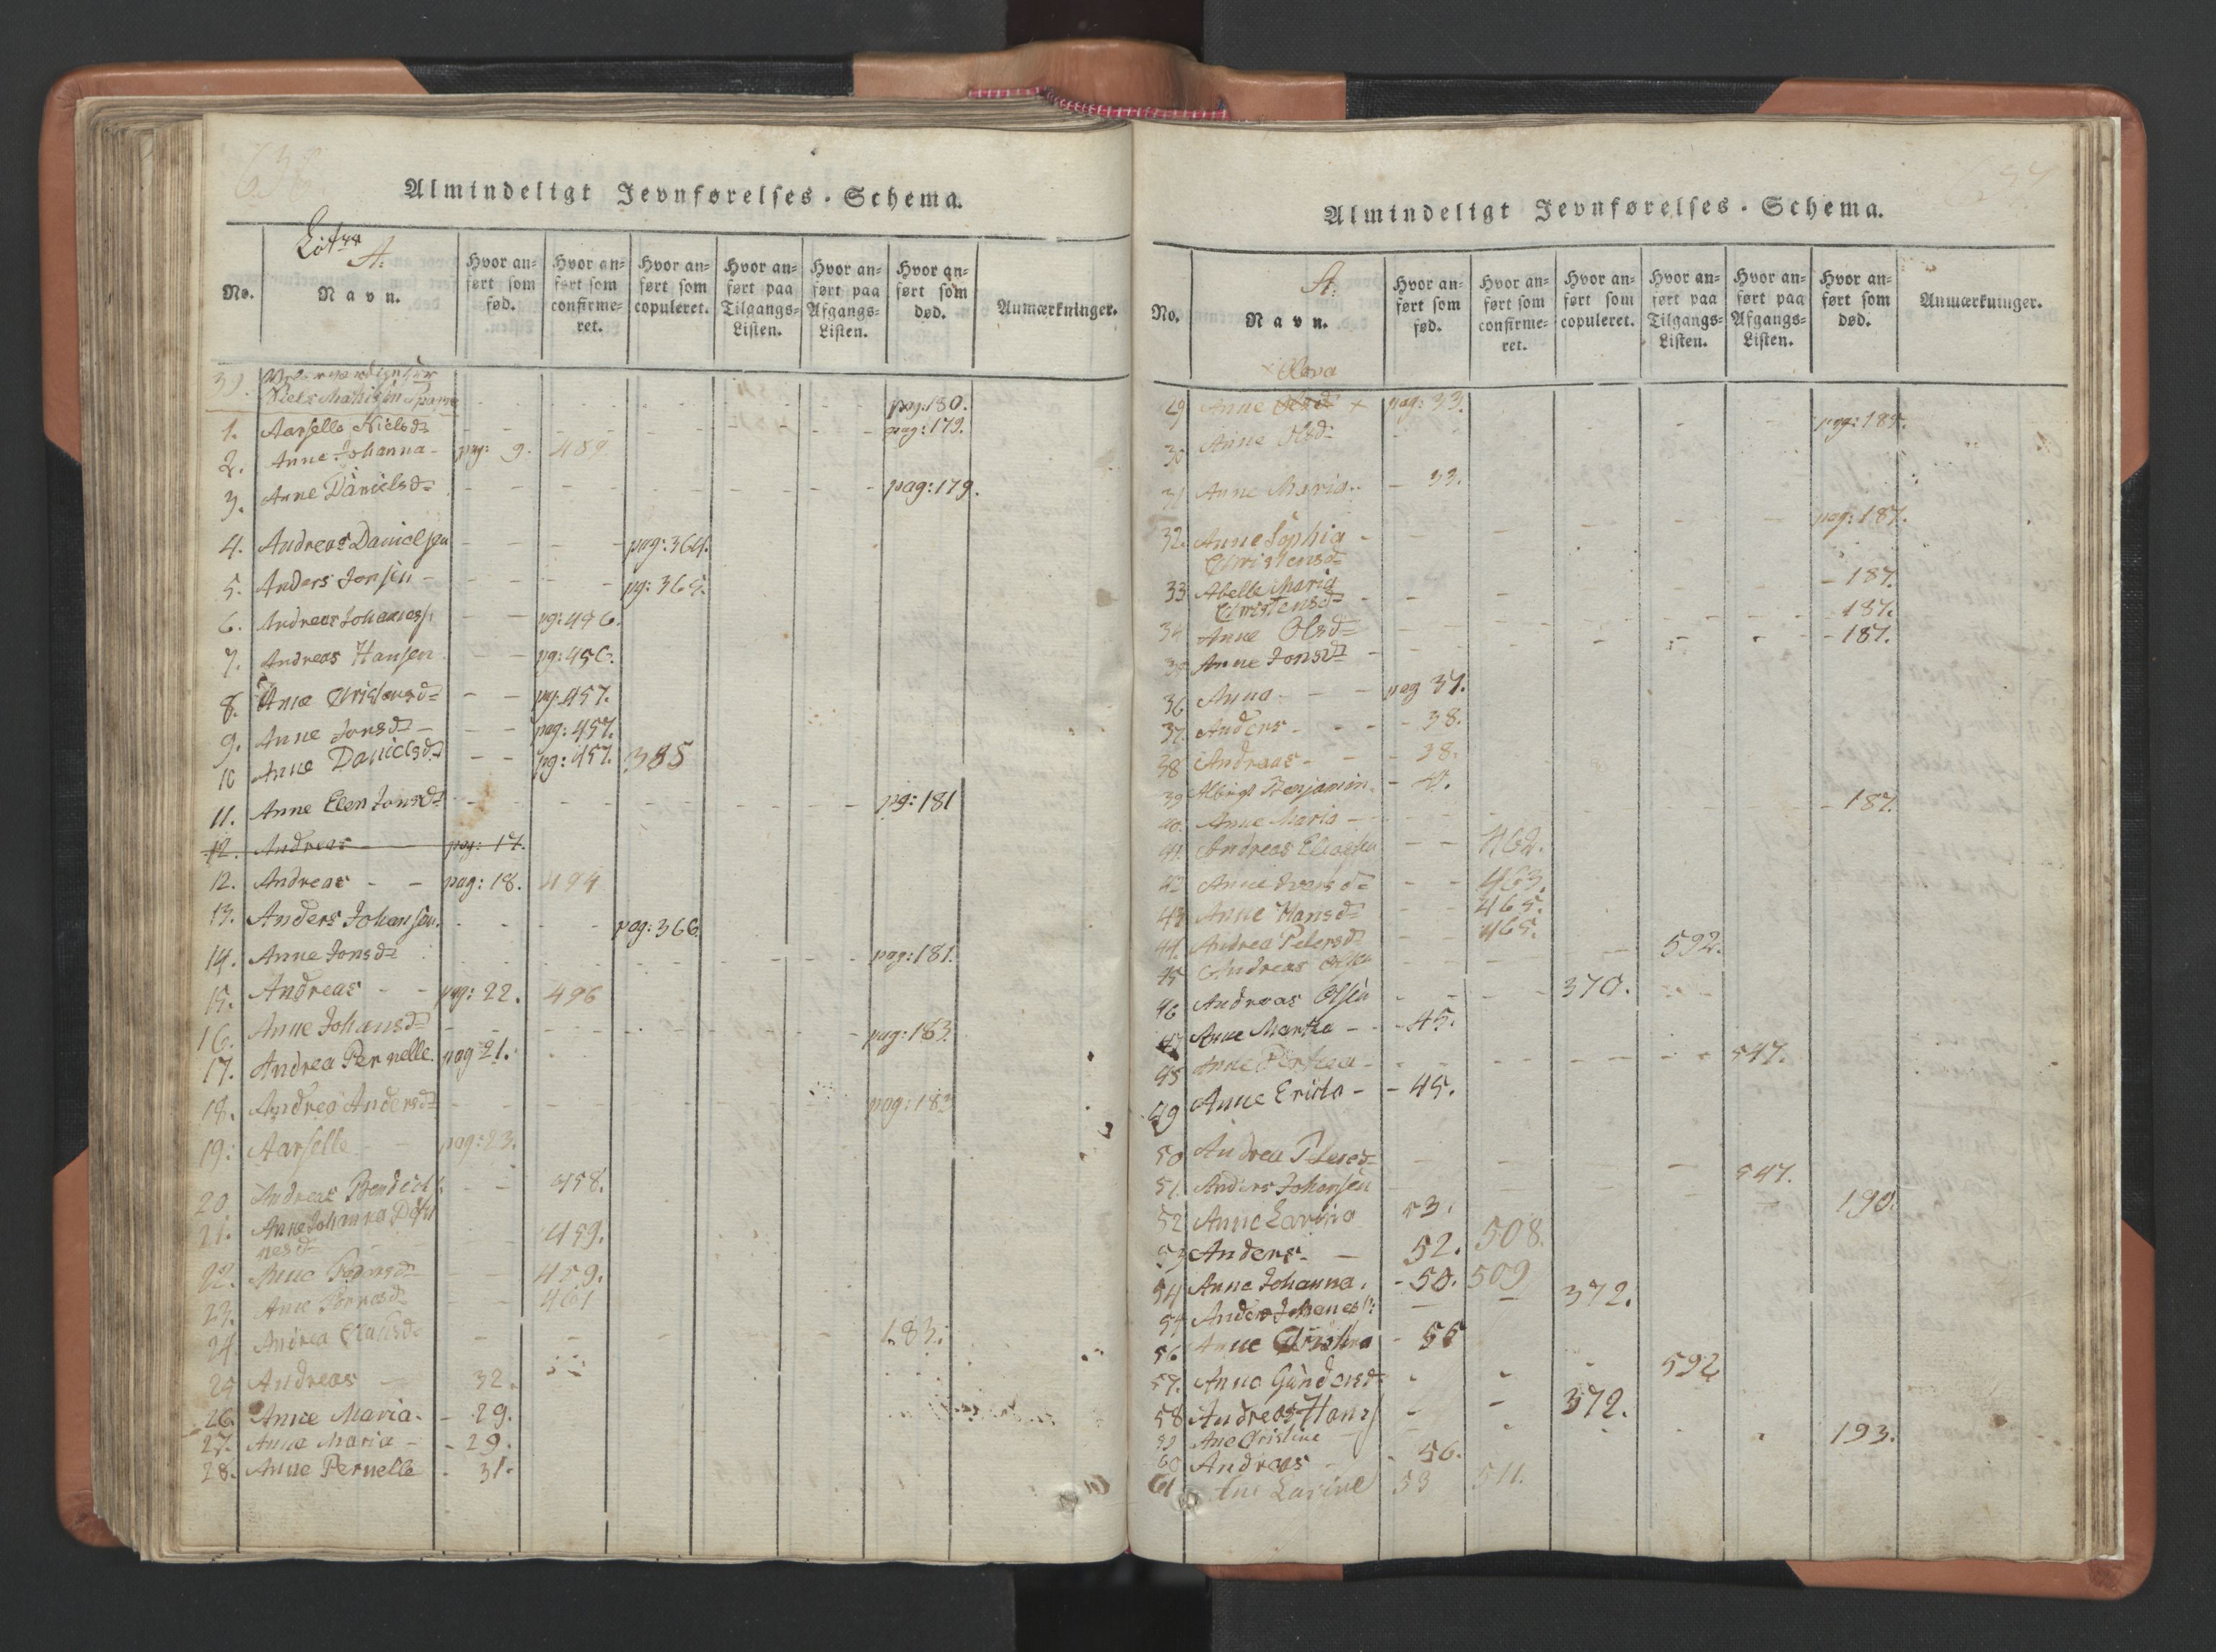 Almindeligt Jevnførelses-Schema.
Litra A.
No.
Navn.
Hvor anført som fød.
Hvor anført som confirmeret.
Hvor anført som copuleret.
Hvor anført paa Tilgangs-Listen.
Hvor anført paa Afgangs-Listen.
Hvor anført som død.
Anmærkninger.
pag: 180.
1. Aarselle Nielsd= pag: 179.
2. Anne Johanna - pag: 9. 489
3. Anne Danielsd= pag: 179.
4. Andreas Danielsen pag: 364.
5. Anders Jonsen - pg: 365.
6. Andreas Johannes pg: 456.
7. Andreas Hansen pg: 456.
8. Anne Christensd= pg. 457.
9. Anne Jonsd= - pag: 457.
10 Anne Danielsd= pg: 457. 385
11. Anne Elen Jonsd= pg: 181
12. Andreas pag: 17.
12. Andreas - - pag: 18. 494
13. Anders Johansen. pag: 366
14. Anne Jonsd= pag: 181.
15. Andreas - - pag: 22. 496
16. Anne Johansd= pag: 183.
17. Andrea Pernelle. pag 21.
18. Andrea Andersd= pag: 183
19. Aarselle pag: 23.
20. Andreas Bendick 458.
21. Anne Johanna
nesd= 459.
22. Anne Pedersd= 459.
23. Anne 461
24. Andrea 183.
25 Andreas 32.
26. Anne Maria - - 29.
27. Anna Maria - - 29.
28. Anne Pernelle - 31.
Almindeligt Jevnførelses-Schema.
A.
No.
Navn.
Hvor anført som fød.
Hvor anført som confirmeret.
Hvor anført som copuleret.
Hvor anført paa Tilgangs-Listen.
Hvor anført paa Afgangs-Listen.
Hvor anført som død.
Anmærkninger.
29 Anne Olsd= × pag: 33.
30 Anne Olsd= pag: 187.
31 Anne Maria - - 33.
32. Anne Sophia - pag: 187.
Christensd=
33 Abelle Maria - 187.
Christensd=
34 Anne Olsd= 187.
35 Anne Jonsd= - 187.
36 Anna - - - pag 37.
37. Anders - - - - 38.
38 Andreas - - - 38.
39 Benjamin.
40. Anne Maria - - 187.
41. Andreas Eliassen - - 462.
42 Anne - - 463.
43 Anne Hansd= - - 465.
44. Andrea Petersd= - - 465.
45 Andreas Olsen 592.
46 Andreas Olsen 370.
47 Anne Martha - - 45.
48 Anne 547.
49 Anne - - 45.
50 Andrea Petersd= 547.
51. Anders Johansen 190.
52 Anne Lavina 53.
53 Anders - 52. 508.
54 Anne Johanna. - 50. 509
54 Anders Johanes 372.
56 Anne Christina - 55
57. Anna Gundersd= 592
58 Andreas Hans 372.
59 Ane Christine 193.
60 Andreas - - 56.
61 Ane Lavine 53 511.